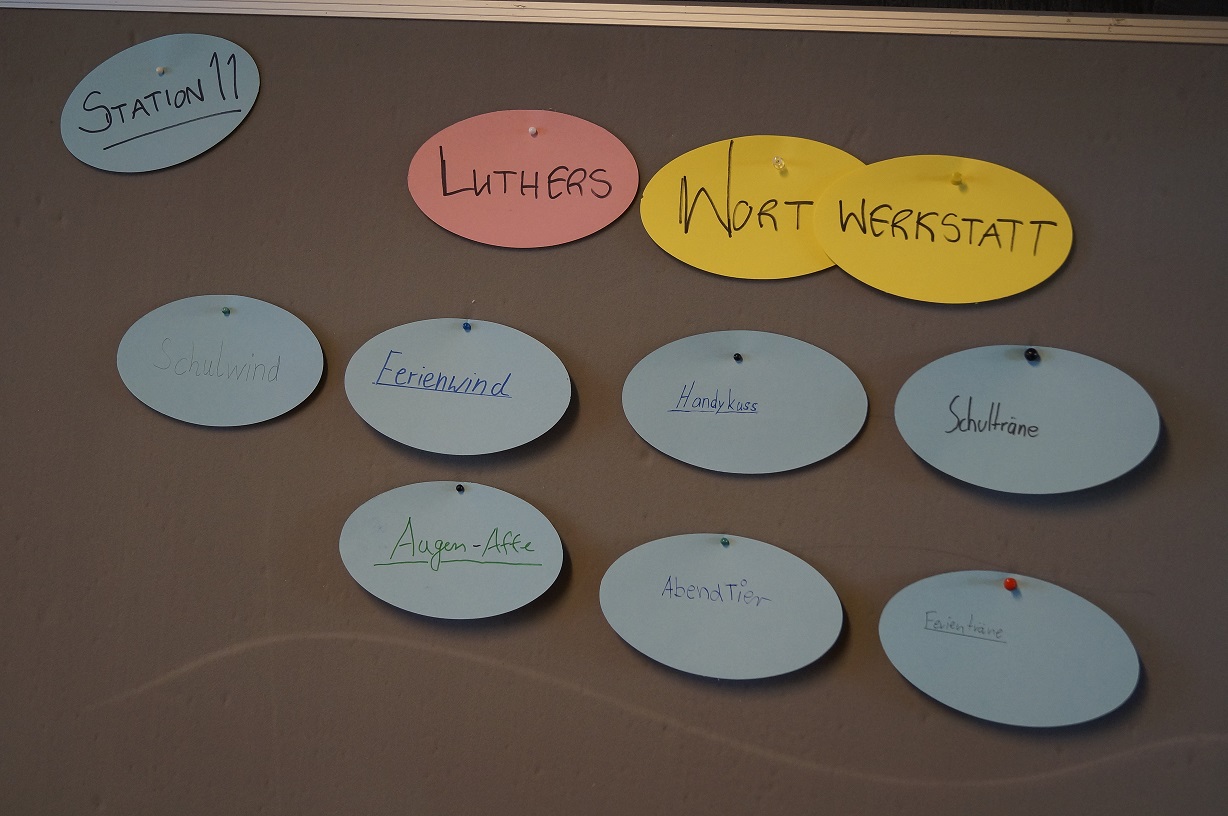 STATION 11
LUTHERS
WORT
WERKSTATT
Schulwind
Ferienwind
Handykuss
Schulträne
Augen-Affe
AbendTier
Ferienträne